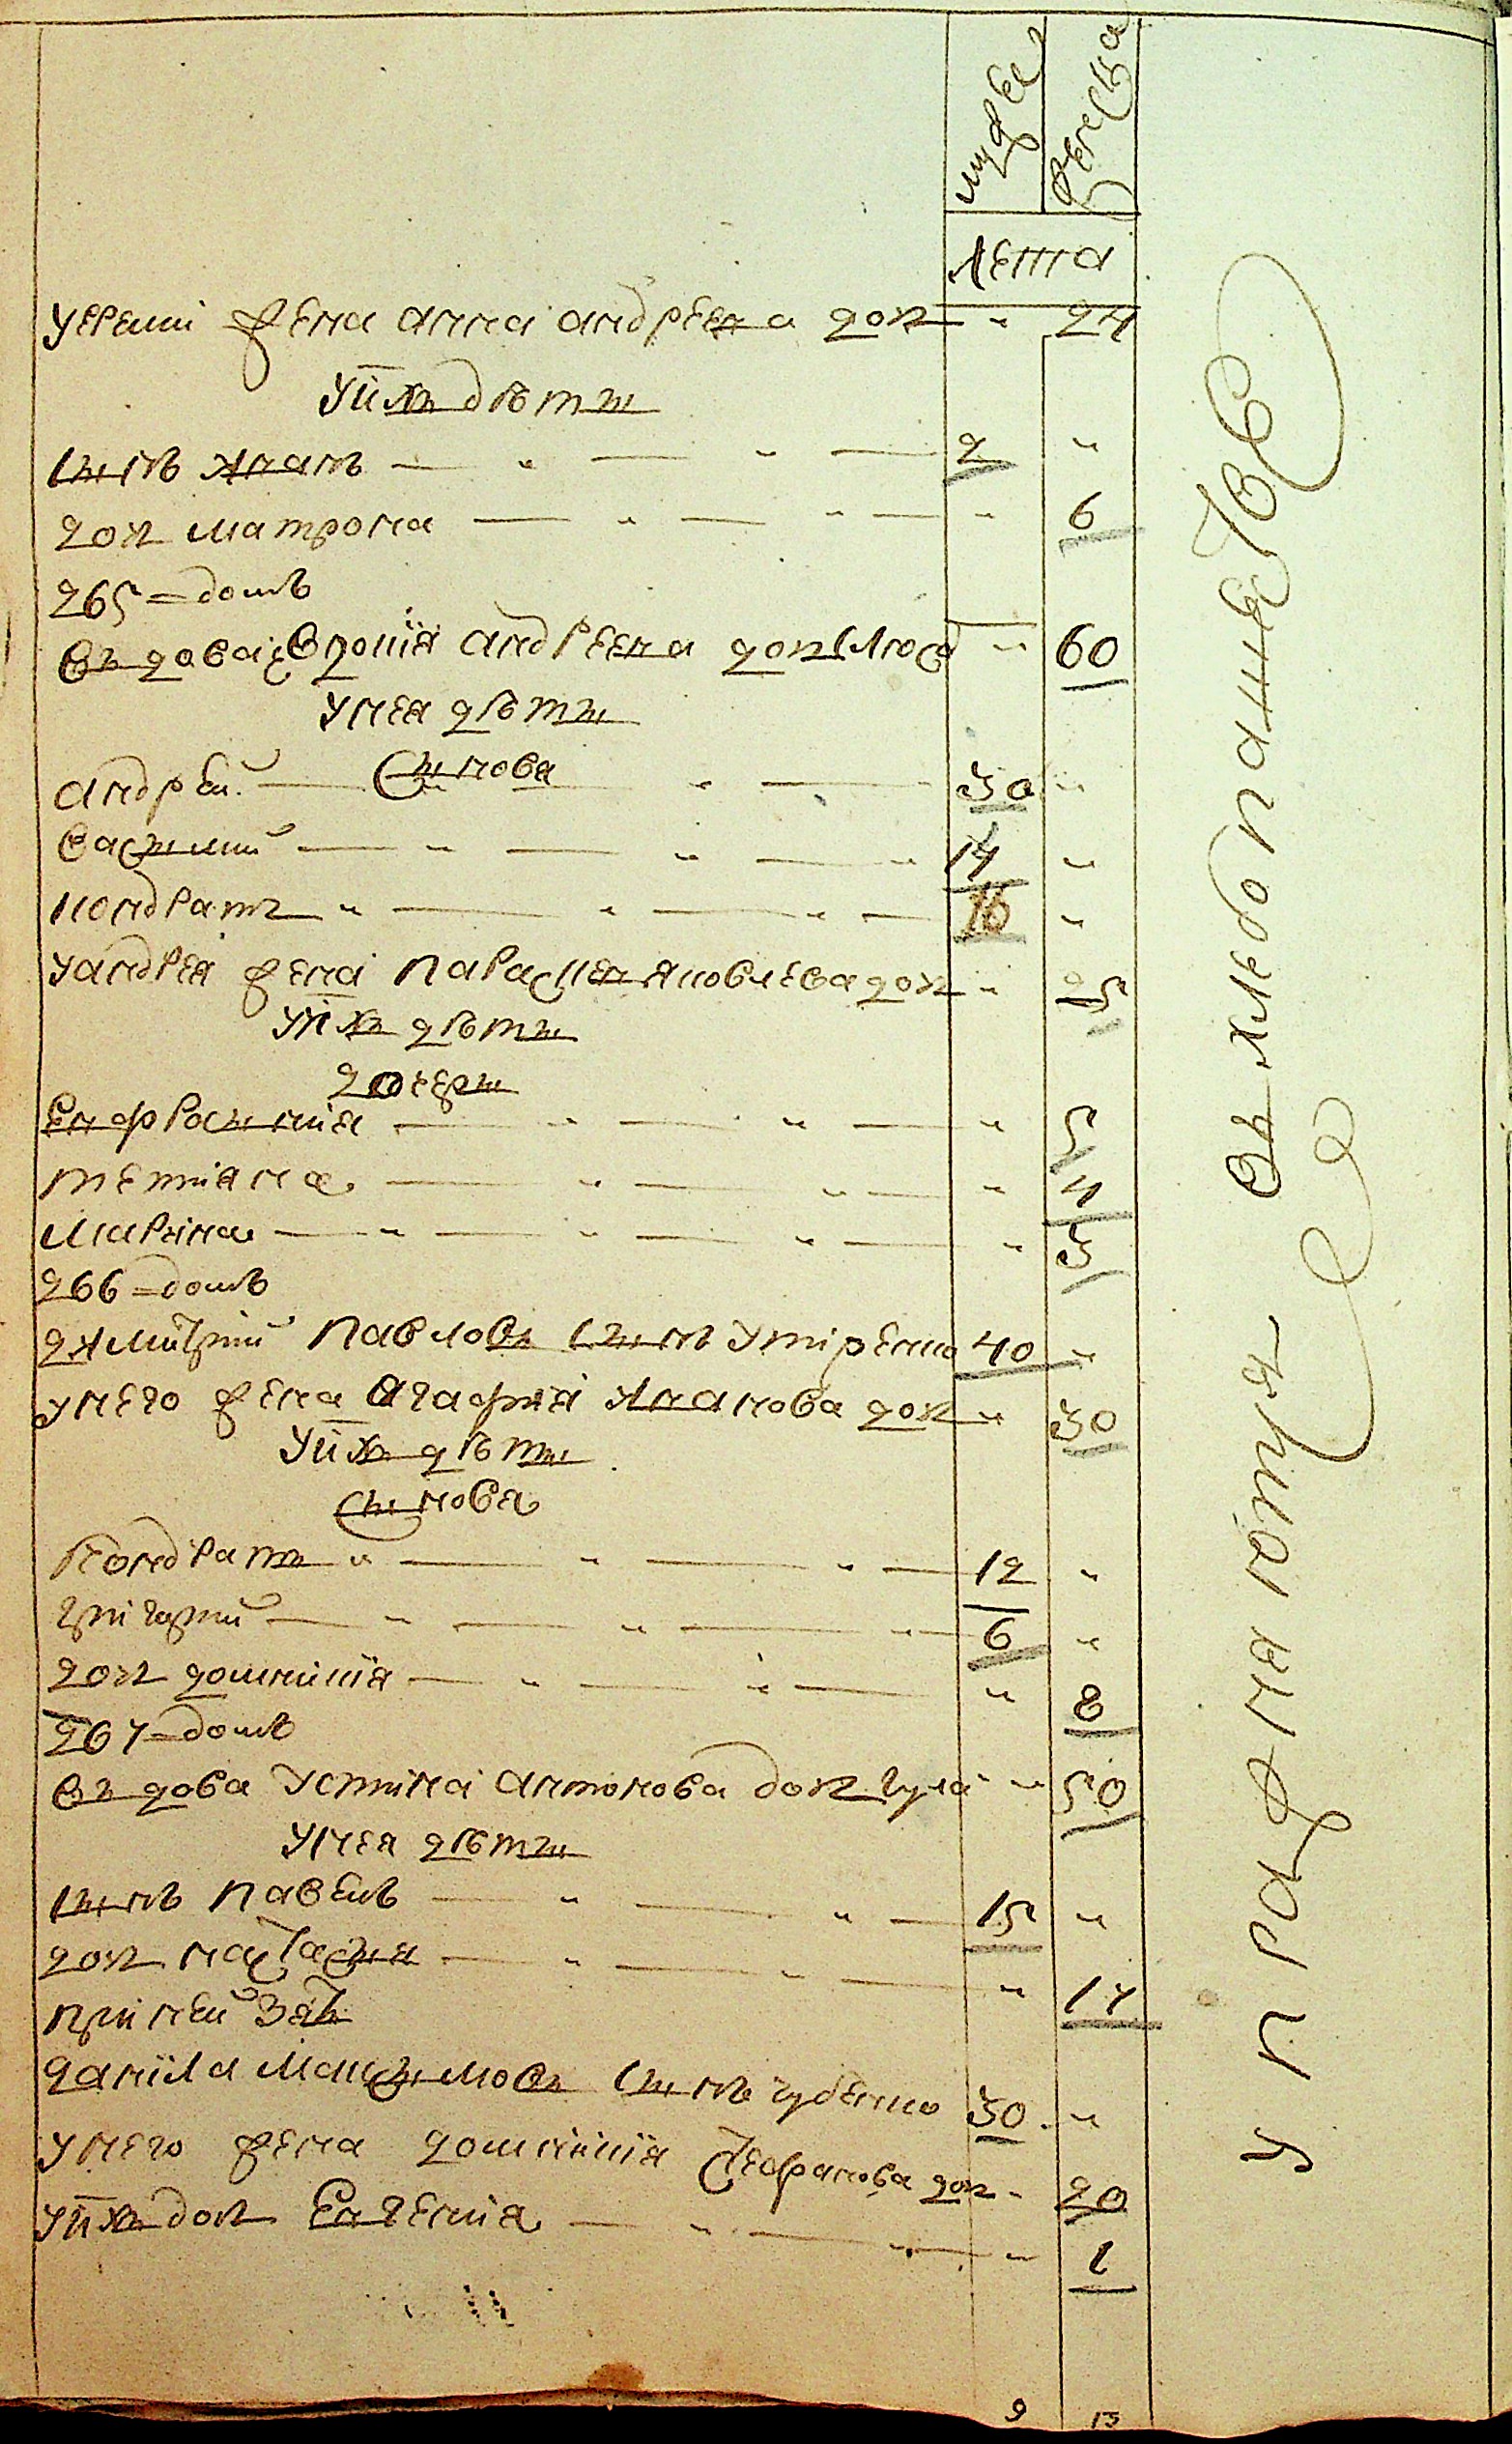 мужес женска
лета
У Ереми жена анна андреевна доч " 24
У ниχъ дѣти
Сынъ Иванъ — " — " — 2 "
доч матрона — " — " — " 6
265 = домъ
Въдова Евдокия андреевна доч " 60
У нея дѣти
Синовя
андрей — " — " — 30 "
василий — " — " — " 14 "
кондратъ " — " — " — 16 "
У андрея жена параскевия яковлева доч " 25
У них дѣти
дочери
Евфросиния — " — " — " 5
тетияна — " — " — " 4
Марина — " — " — " — " 3
266 = домъ
димитрий павловъ Сынъ Утиренко 40 "
У него жена агафия Иванова доч " 30
У них дѣти
Синовя
Кондратъ " — " — " — 12 "
григорий — " — " — " 6 "
доч домникия — " — " — " 8
267 = домъ
Въдова Устина антонова доч Гула " 50
У нея дѣти
Сынъ павелъ — " — " — 15 "
доч настасия — " — " — " 17
при ней зять
данила Максимовъ Сынъ губенко 30 "
У него жена домникия Стефанова доч " 20
У них доч Евгения — " — " — " 1
9 13
Упражняются въ хлебопашестве